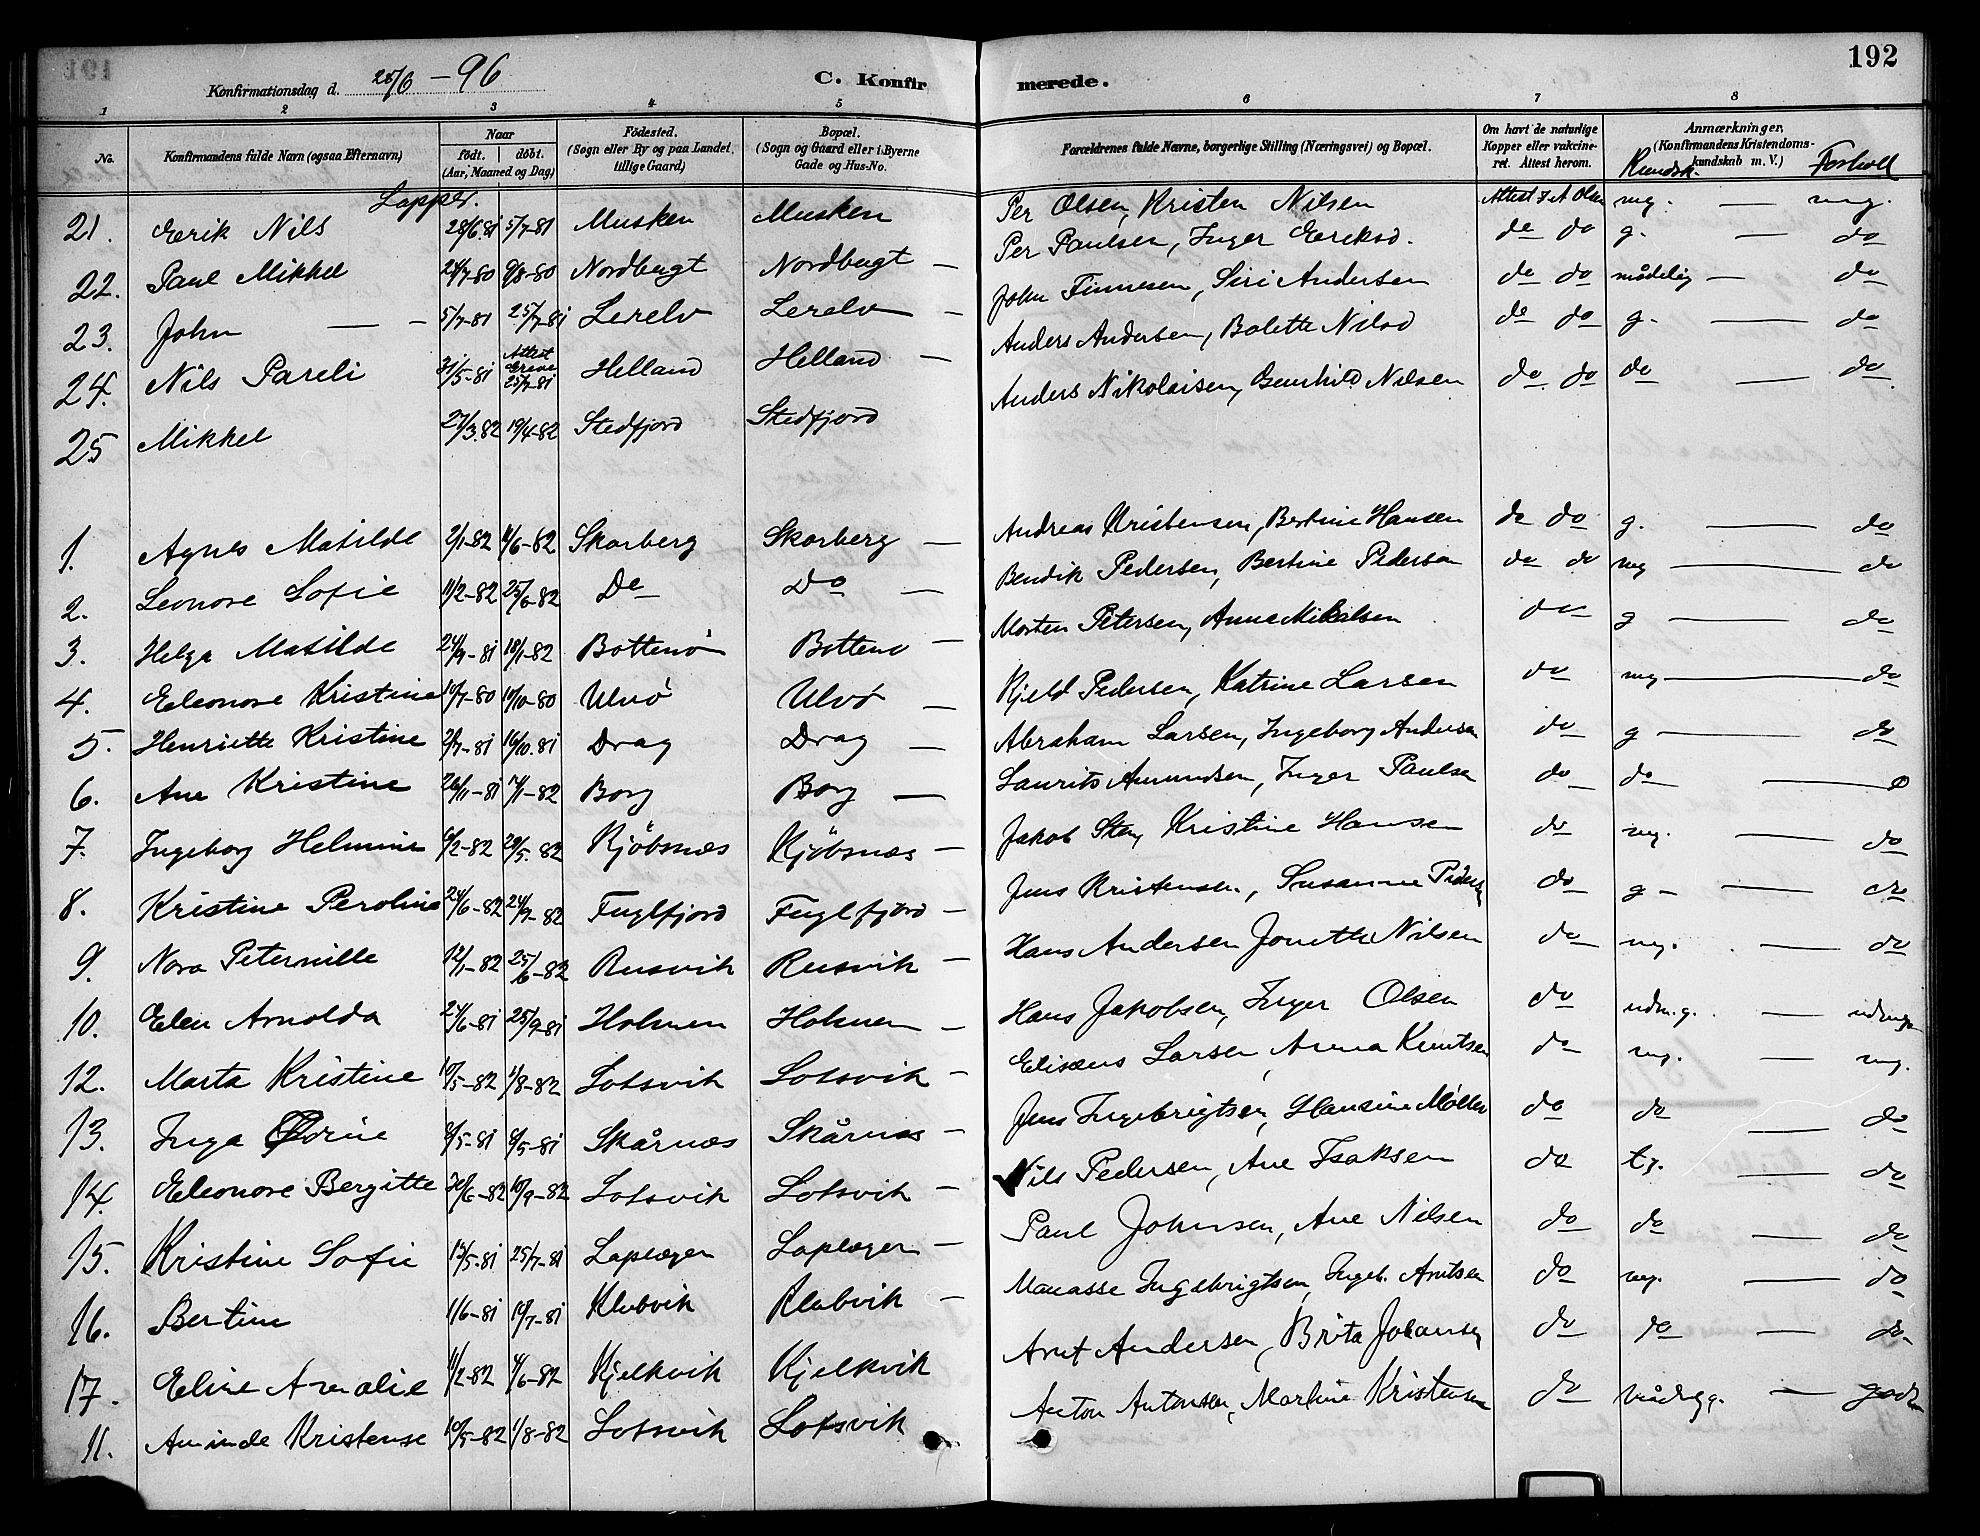 192
Konfirmationsdag d. 28/6 - 96
C. Konfirmerede.
1 2 3 4 5 6 7 8
No. Konfirmandens fulde Navn (ogsaa Efternavn) Naar födt. döbt. (Aar, Maaned og Dag) Födested. (Sogn eller By og paa Landet tillige Gaard) Bopæl. (Sogn og Gaard eller i Byerne Gade og Hus-No. Forældrenes fulde Navne, borgerlige Stilling (Næringsvei) og Bopæl. Om havt de naturlige Kopper eller vakcineret. Attest herom. Anmærkninger, (Konfirmandens Kristendomskundskab m. V.) Kundsk. Forhold
Lapper.
21. Erik Nils 28/6 81 5/7-81 Musken Musken Per Olsen, Kristen Nilsen Attest f. A Olsen mg. — mg.
22. Paul Mikkel 24/7-80 9/8-80 Nordbugt Nordbugt — Per Paulsen, Inger Eriksd. do do g. — do
23. John — — 5/7-81 25/7-81 Lerelv Lerelv — John Finnesen, Siri Andersen do do mådelig — do
24. Nils Pareli 31/5-81 Attest 25/7-81 Helland Helland — Anders Andersen, Bolette Nilsd do do g. — do
25 Mikkel 27/3.82 19/4-82 Stedfjord Stedfjord Anders Nikolaisen, Gunhild Nilsen do do do — do
1. Agnes Matilde 2/1-82 4/6-82 Skarberg Skarberg — Andreas Kristensen, Bertine Hansen do do g. — do
2. Leonore Sofie 11/2-82 25/6-82 Do Do — Bendik Pedersen, Bertine Pedersen do do mg — do
3. Helga Matilde 24/9-81 18/1-82 Bottenö Botteno — Morten Petersen, Anne Mikalsen do g — do
4. Eleonore Kristine 10/7-80 10/10-80 Ulvö Ulvö — Kjeld Pedersen, Katrine Larsen do mg — do
5. Henriette Kristine 2/7-81 16/10.81 Drag Drag — Abraham Larsen, Ingeborg Andersen do g — do
6. Ane Kristine 26/11-81 7/1-82 Borg Borg — Laurits Amundsen, Inger Paulsen do do —
7. Ingeborg Helmine 6/2-82 29/5.82 Kjöbsnæs Kjöbsnæs — Jakob Sten, Kristine Hansen do mg. — do
8. Kristine Peroline 24/6-82 24/9-82 Fuglfjord Fuglfjord — Jens Kristensen, Susanne Peders do g — do
9. Nora Peternille 12/1-82 25/6-82 Rusvik Rusvik — Hans Andersen Jonette Nilsen do mg. — do
10. Elen Arnolda 24/6-81 25/9-81 Holmen Holmen — Hans Jakobsen, Inger Olsen do udm.g. — udmg
12. Marta Kristine 10/5-82 1/8-82 Lotsvik Lotsvik — Elisæus Larsen, Anna Knutsen do mg. — mg.
13. Inga 2/5-81 8/5-81 Skårnæs Skårnæs — Jens Ingebrigtsen, Hansine Möller do do — do
14. Eleonore Bergitte 30/6-82 10/9-82 Lotsvik Lotsvik — Nils Pedersen, Ane Isaksen do tg. — do
15. Kristine Sofie 13/5-81 25/7-81 Laplæger Laplæger — Paul Johnsen, Ane Nilsen do do — do
16. Bertine 1/6-81 10/7-81 Klubvik Klubvik — Manasse Ingebrigtsen, Ingeb. Arntsen do mg. — do
17. Eline Amalie 11/2-82 4/6-82 Kjelkvik Kjelkvik Arnt Andersen, Brita Johansen do do — do
11. Aminde Kristense 10/5-82 1/8-82 Lotsvik Lotsvik Anton Antonsen, Martine Kristensen do — godt